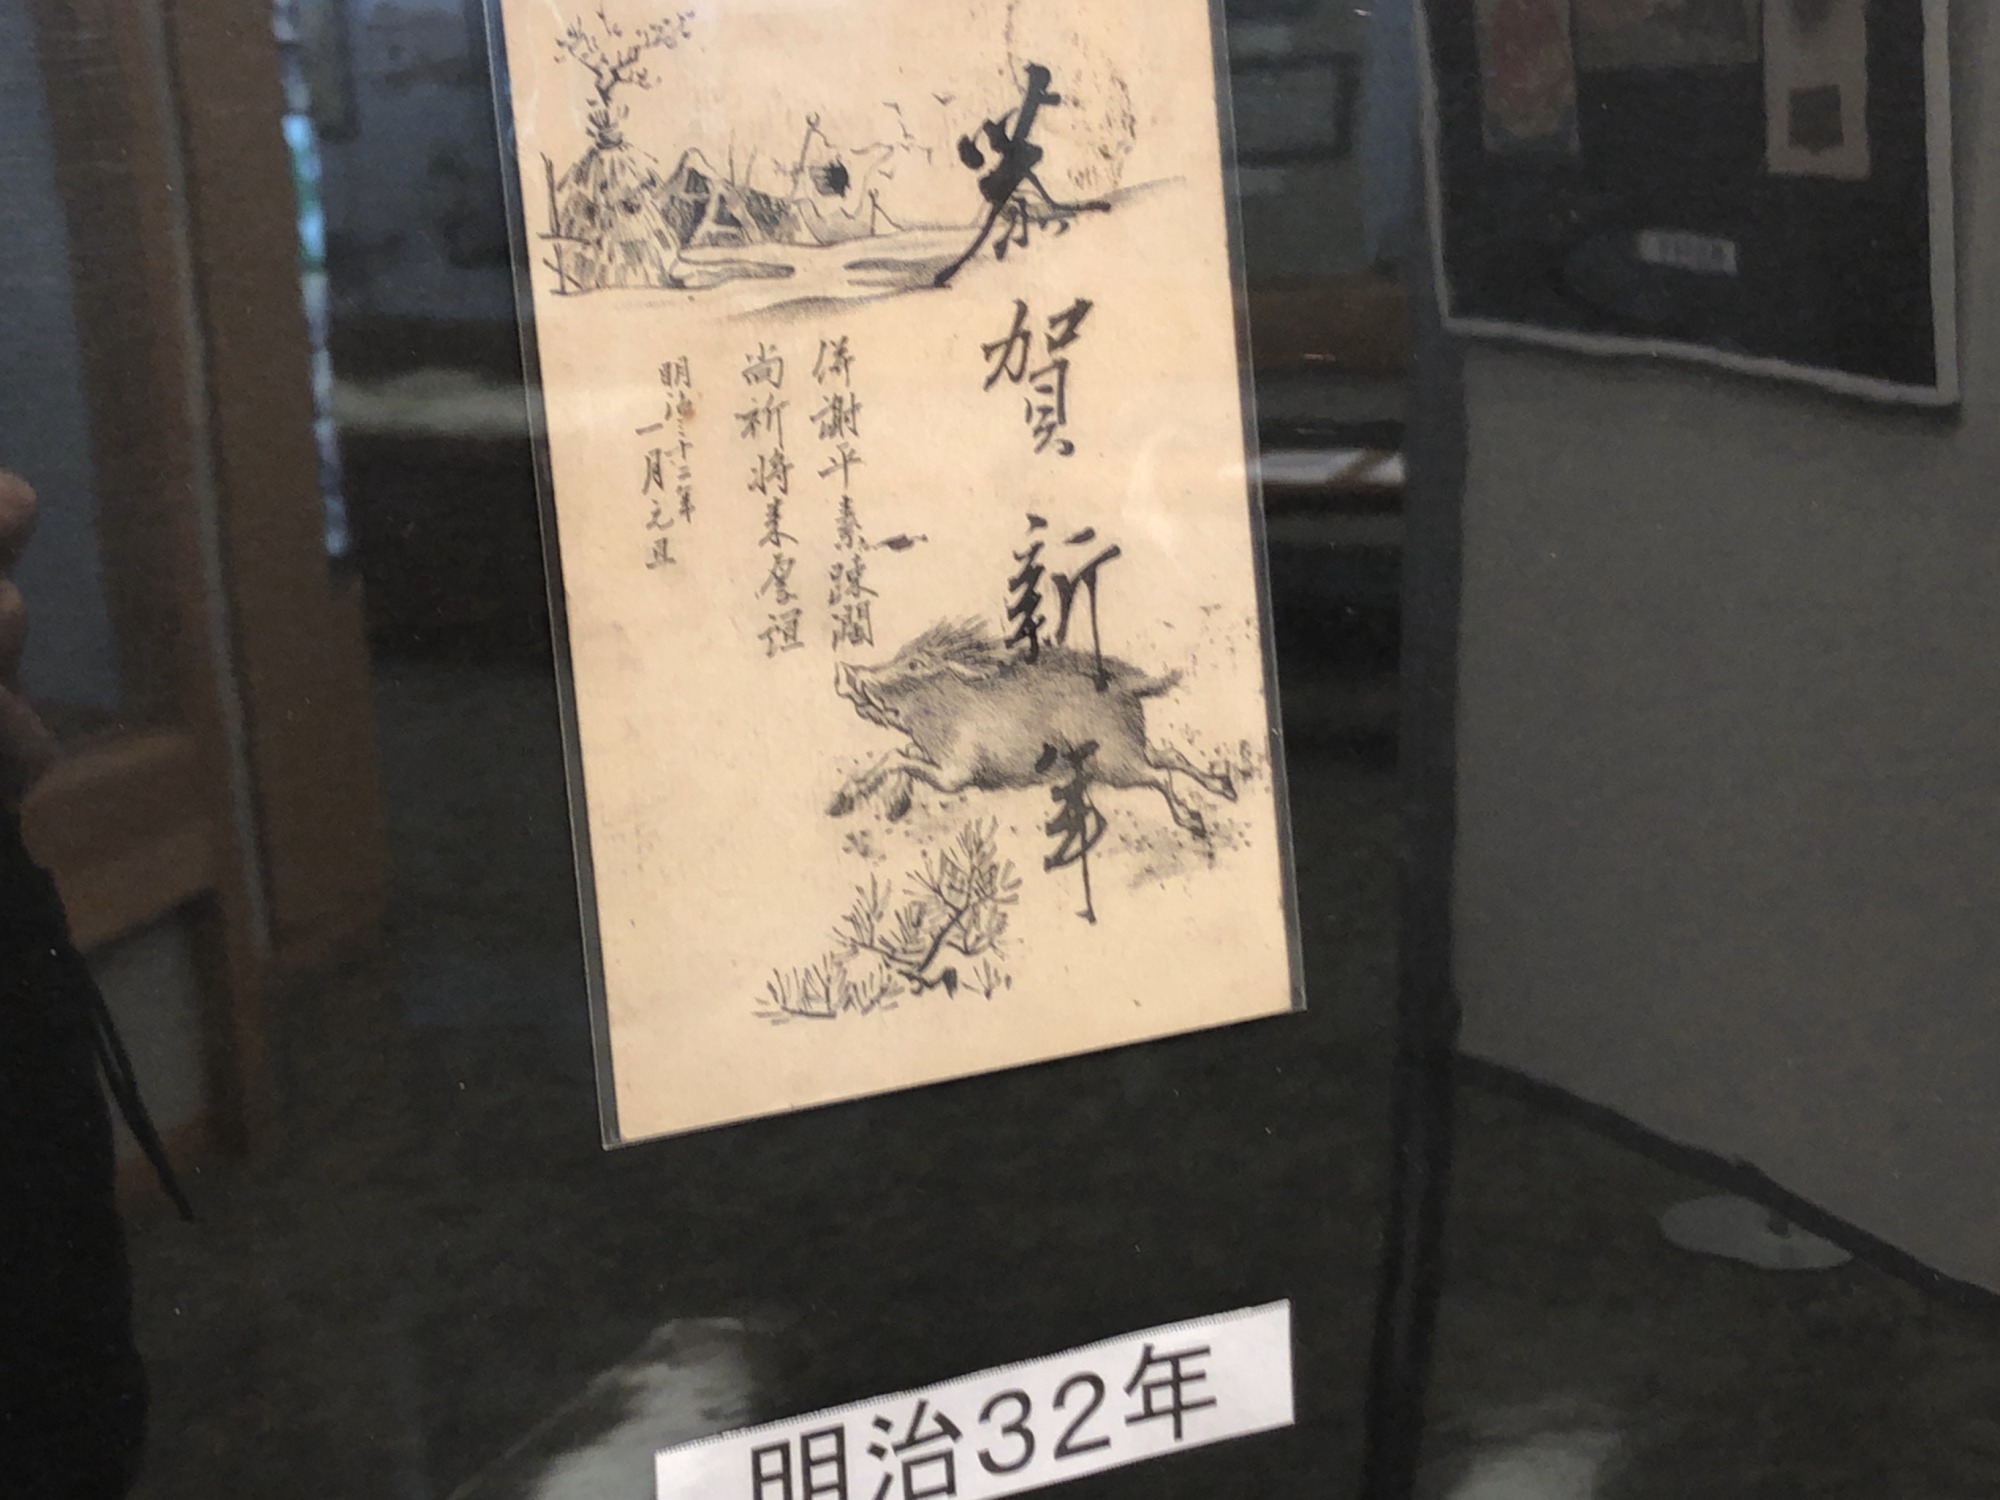 恭賀新年
併謝平素疎濶
尚祈将来厚誼
明治三十二年
一月元旦
明治32年